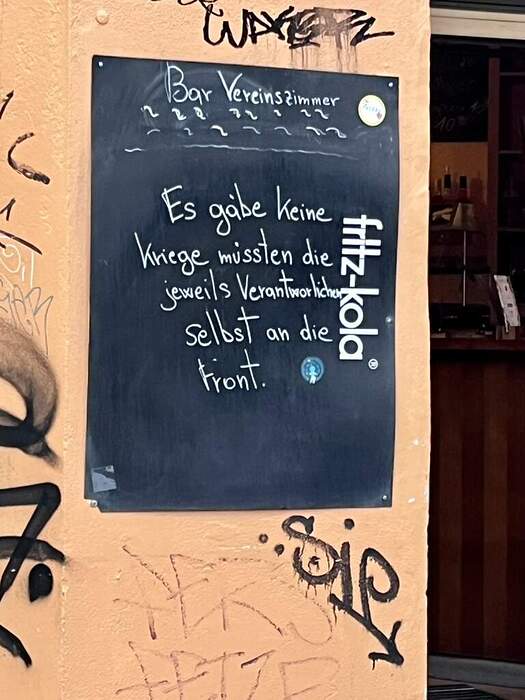 Bar Vereinszimmer
Es gäbe keine
Kriege müssten die
jeweils Verantwortlichen
selbst an die
Front.
fritz-kola®